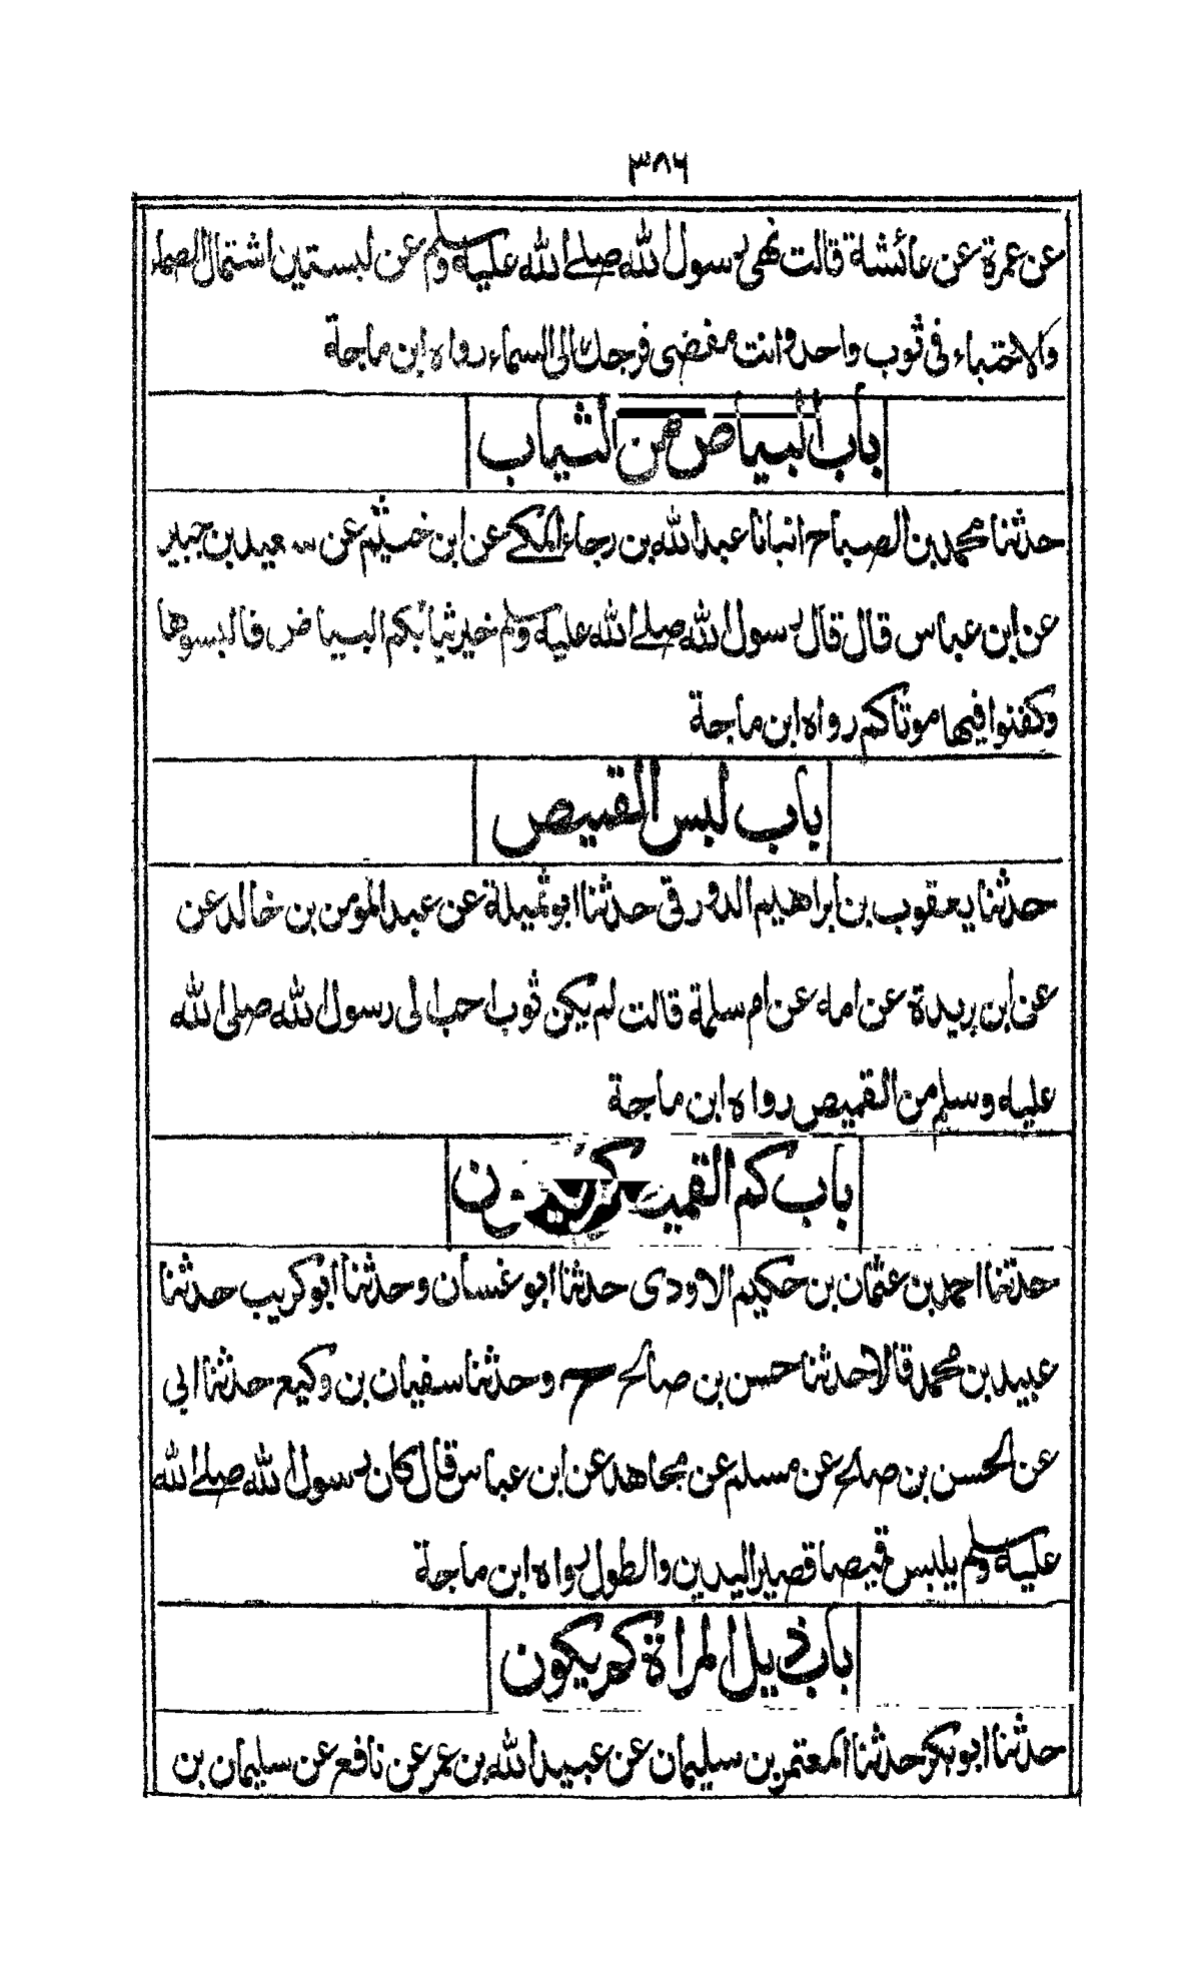 ٣٨٦
عن عمرة عن عائشة قالت نهى رسول الله صلے الله عليه وسلم عن لبستين اشتمال الصماء
والاحتباء فى ثوب واحد وانت مفضى فرجك الى السماء رواه ابن ماجة
باب البياض من الثياب
حدثنا محمد بن الصباح انبانا عبد الله بن رجاء المكے عن ابن خثيم عن سعيد بن جبير
عن ابن عباس قال قال رسول الله صلے الله عليه وسلم خير ثيابكم البياض فالبسوها
وكفنوا فيها موتاكم رواه ابن ماجة
باب لبس القميص
حدثنا يعقوب بن ابراهيم الدورقى حدثنا ابو تميلة عن عبد المومن بن خالد عن
عن ابن بريدة عن امه عن ام سلمة قالت لم يكن ثوب احب الى رسول الله صلى الله
عليه وسلم من القميص رواه ابن ماجة
باب كم القميص كم يكون
حدثنا احمد بن عثمان بن حكيم الاودى حدثنا ابو غسان وحدثنا ابو كريب حدثنا
عبيد بن محمد قالا حدثنا حسن بن صالح ح وحدثنا سفيان بن وكيع حدثنا ابى
عن الحسن بن صالح عن مسلم عن مجاهد عن ابن عباس قال كان رسول الله صلے الله
عليه وسلم يلبس قميصا قصير اليدين والطول رواه ابن ماجة
باب ذيل المراة كم يكون
حدثنا ابو بكر حدثنا المعتمر بن سليمان عن عبيد الله بن عمر عن نافع عن سليمان بن